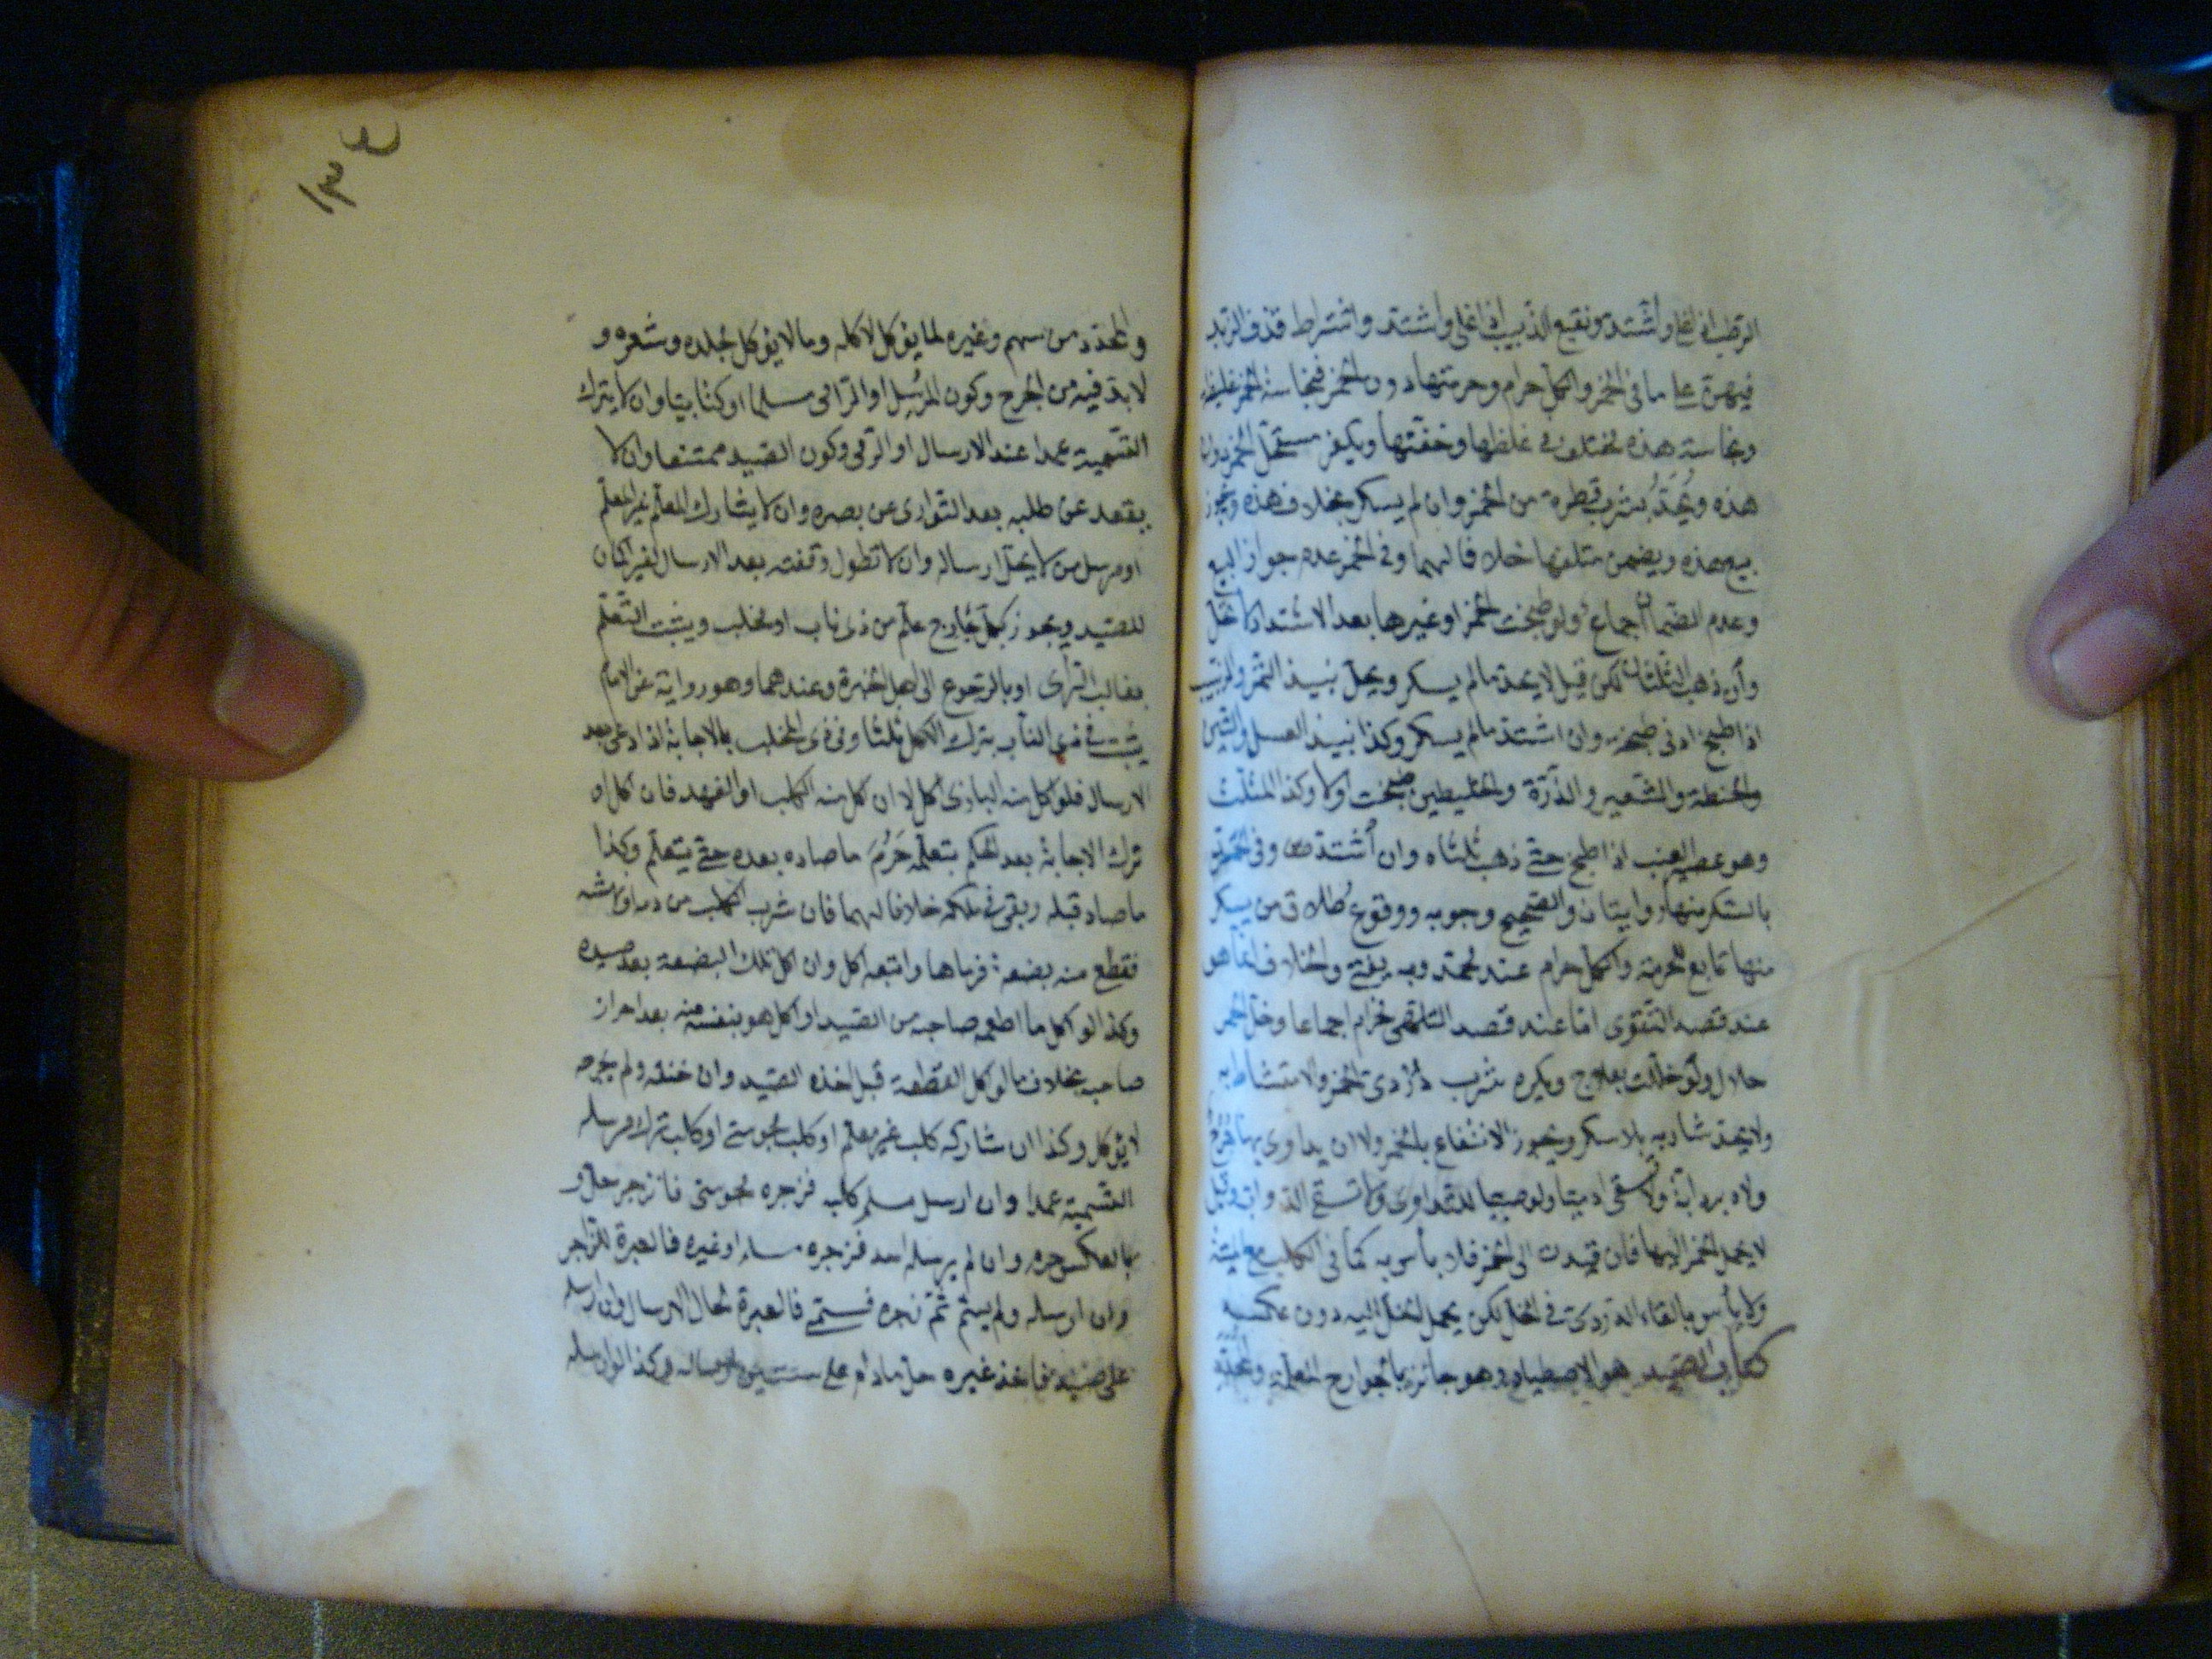 الرطب اذا غلا واشتد ونقيع الزبيب اذا غلى واشتد واشتراط قذف الزبد
فيهن على ما في الخمر والكل حرام وحرمتها دون الخمر فنجاسة الخمر غليظة
ونجاسة هذه مختلف في غلظها وخفتها ويكفر مستحل الخمر دون
هذه ويحد بشرب قطرة من الخمر وان لم يسكر بخلاف هذه ويجوز
بيع هذه ويضمن متلفها خلافا لهما وفي الخمر عدم جواز البيع
وعدم الضمان اجماع ولو طبخت الخمر او غيرها بعد الاشتداد لا تحل
وان ذهب الثلثان لكن قيل لا يحد ما لم يسكر ويحل نبيذ التمر والزبيب
اذا طبخ ادنى طبخة وان اشتد ما لم يسكر وكذا نبيذ العسل والتين
والحنطة والشعير والذرة والخليطين طبخت اولا وكذا المثلث
وهو عصير العنب اذا طبخ حتى ذهب ثلثاه وان اشتد وفي الحد
بالسكر منها روايتان والصحيح وجوبه ووقوع طلاق من يسكر
منها تابع للحرمة والكل حرام عند محمد وبه يفتى والخلاف انما هو
عند قصد التقوى اما عند قصد التلهى فحرام اجماعا وخل الخمر
حلال ولو خللت بعلاج ويكره شرب دردى الخمر والامتشاط به
ولا يحد شاربه بلا سكر ويجوز الانتفاع بالخمر ولا ان يداوى بها جرح
ولا دبر دابة ولا تسقى ادميا ولو صبيا للتداوى ولا تسقى الدواب وقيل
لا يحمل الخمر اليها فان قيدت الى الخمر فلا بأس به كما في الكلب مع الميتة
ولا بأس بالقاء الدردى في الخل لكن يحمل الخل اليه دون عكسه
كتاب الصيد هو الاصطياد وهو جائز بالجوارح المعلمة والمحدد
١٣٤
والمحدد من سهم وغيره لما يؤكل لاكله وما لا يؤكل لجلده وشعره و
لا بد فيه من الجرح وكون المرسل او الرامى مسلما او كتابيا وان لا يترك
التسمية عمدا عند الارسال او الرمى وكون الصيد ممتنعا وان لا
يقعد عن طلبه بعد التوارى عن بصره وان لا يشارك المعلم غير المعلم
او مرسل من لا يحل ارساله وان لا تطول وقفته بعد الارسال لغير اكمان
للصيد ويجوز بكل جارح علم من ذى ناب او مخلب ويثبت التعلم
بغالب الراى او بالرجوع الى اهل الخبرة وعندهما وهو رواية عن الامام
يثبت في ذى الناب بترك الاكل ثلثا وفى ذى المخلب بالاجابة اذا دعى بعد
الارسال فلو اكل منه البازى اكل لا ان اكل منه الكلب او الفهد فان اكل او
ترك الاجابة بعد الحكم بتعلمه حرم ما صاده بعده حتى يتعلم وكذا
ما صاد قبله وبقى في ملكه خلافا لهما فان شرب الكلب من دمه او نهشه
فقطع منه بضعة فرماها واتبعه اكل وان اكل تلك البضعة بعد صيده
وكذا لو اكل ما اطعمه صاحبه من الصيد او اكل هو بنفسه منه بعد احراز
صاحبه بخلاف ما لو اكل القطعة قبل اخذه الصيد وان خنقه ولم يجرحه
لا يؤكل وكذا ان شاركه كلب غير معلم او كلب مجوسى او كلب ترك مرسله
التسمية عمدا وان ارسل مسلم كلبه فزجره مجوسى فانزجر حل و
بالعكس حرم وان لم يرسله احد فزجره مسلم او غيره فالعبرة للزاجر
وان ارسله ولم يسم ثم زجره فسمى فالعبرة لحال الارسال وان ارسله
على صيد فاخذ غيره حل مادام على سنن ارساله وكذا لو ارسله